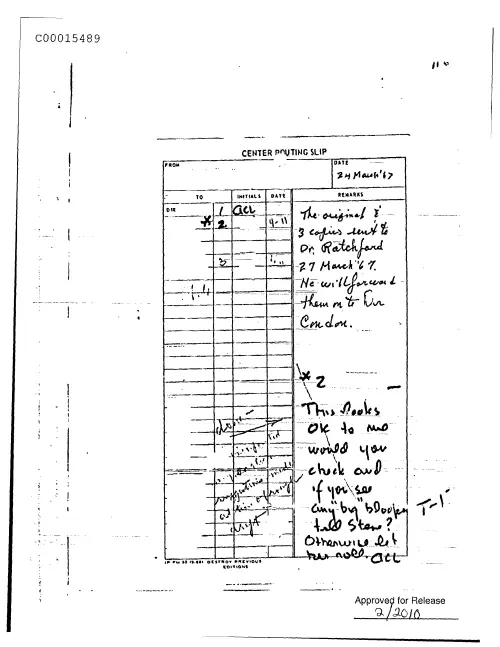 C00015489
116
CENTER ROUTING SLIP
FROM
DATE
24 March '67
TO
INITIALS
DATE
REMARKS
DIR
1 ACL
* 2 4-11
3
The original &
3 copies sent to
Dr. Ratchford
27 March '67.
He will forward
them on to Dr.
Condon.
1.4
* 2
This looks
OK to me
would you
check and
if you see
any "big" blooper
tell Steve?
Otherwise let
her roll. ACL
T-1
DESTROY PREVIOUS
EDITIONS
Approved for Release
2/2010